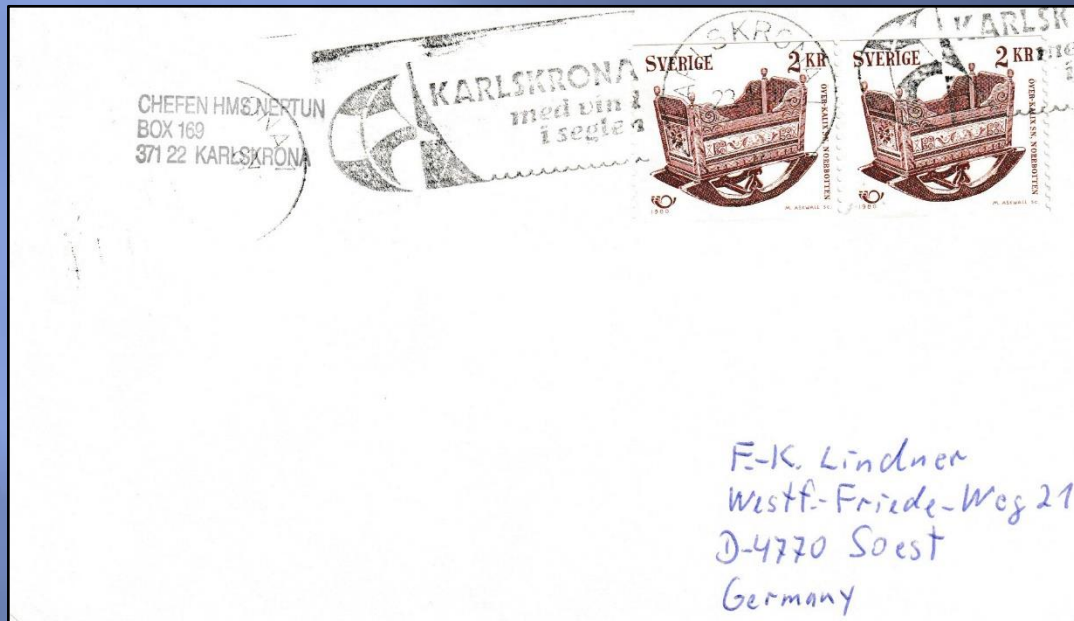 CHEFEN HMS NEPTUN
BOX 169
371 22 KARLSKRONA
KARLSKRONA
med vin
i segle
KARLSKRONA
22
KARLSK
SVERIGE 2 KR
ÖVER-KALIX SN NORRBOTTEN
1980
M. ASEWALL SC.
SVERIGE 2 KR
ÖVER-KALIX SN NORRBOTTEN
1980
M. ASEWALL SC.
F.-K. Lindner
Westf.-Friede-Weg 21
D-4770 Soest
Germany